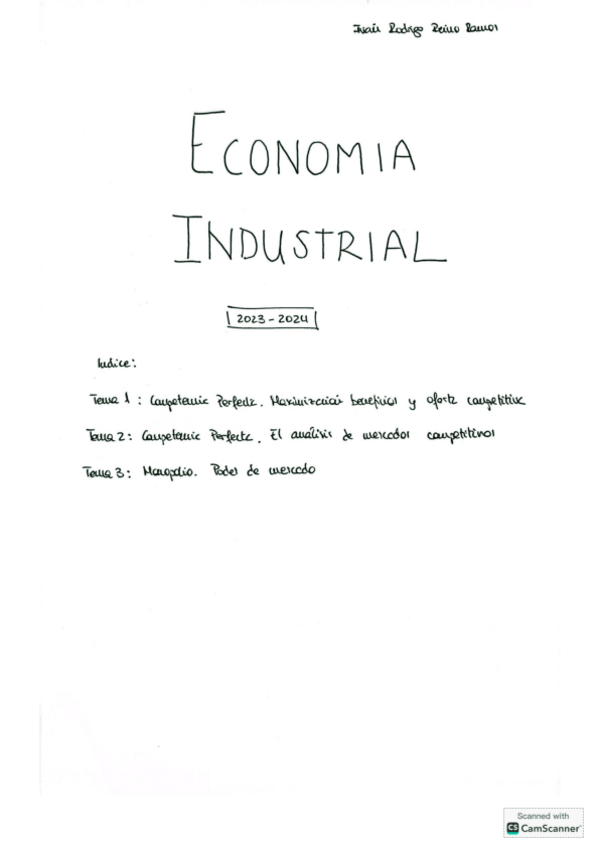 Iván Rodrigo Reino Ramos
ECONOMIA
INDUSTRIAL
2023 - 2024
Indice:
Tema 1 : Competencia Perfecta. Maximización beneficios y oferta competitiva
Tema 2: Competencia Perfecta. El análisis de mercados competitivos
Tema 3: Monopolio. Poder de mercado
Scanned with
CS CamScanner